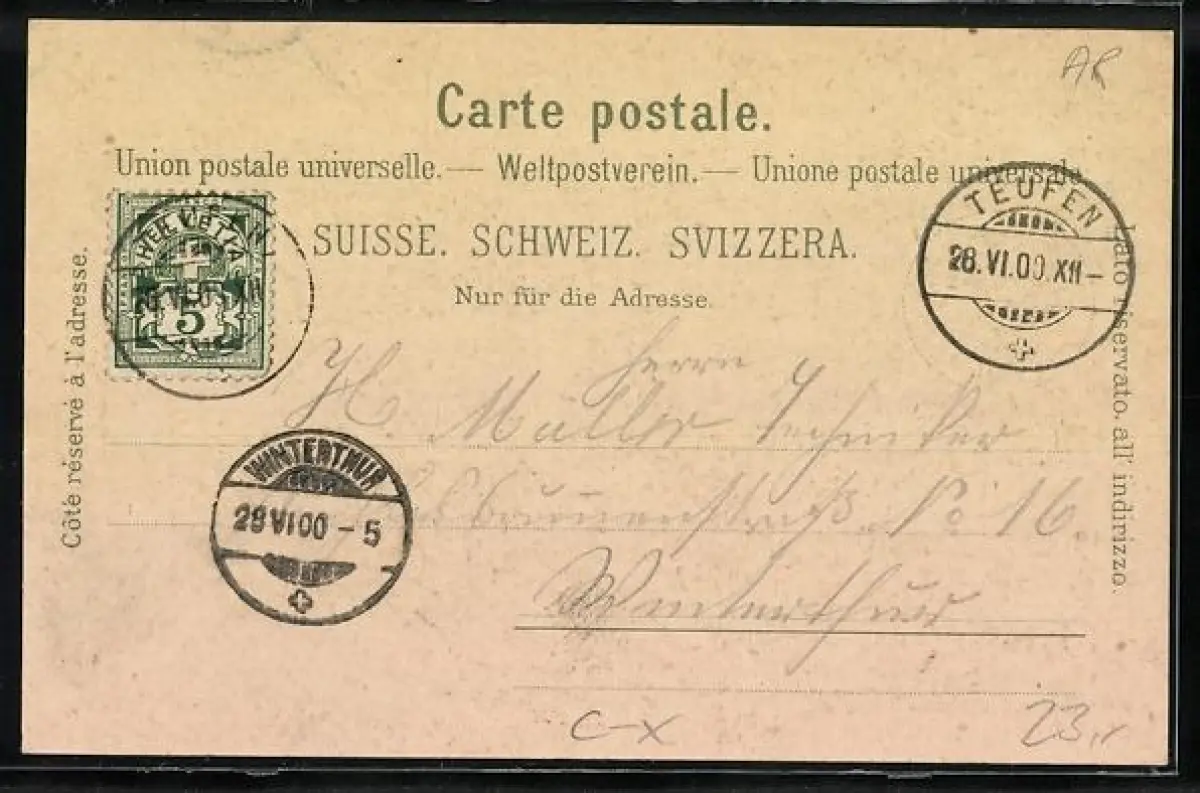 AR
Carte postale.
Union postale universelle. — Weltpostverein. — Unione postale universale
SUISSE. SCHWEIZ. SVIZZERA.
Nur für die Adresse.
Côté réservé à l'adresse.
Lato riservato all' indirizzo.
HELVETIA
5
TEUFEN
28.VI.00.XII-
Herrn
H. Müller Techniker
No 16.
Winterthur
WINTERTHUR
29 VI 00 - 5
C-X
23.-